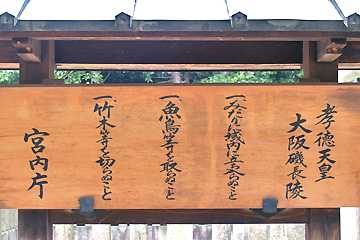 孝徳天皇
大阪磯長陵
一、みだりに域内に立ち入らぬこと
一、魚鳥等を取らぬこと
一、竹木等を切らぬこと
宮内庁